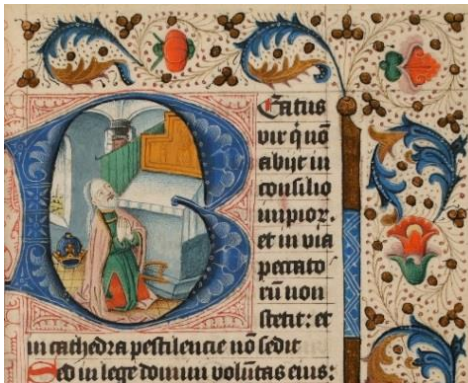 Eatus
vir q̇ nō
abijt in
consilio
impioꝝ.
et in via
peccato
rū non
stetit: et
in cathedra pestilencie nō sedit
Sed in lege domini volūtas eius: